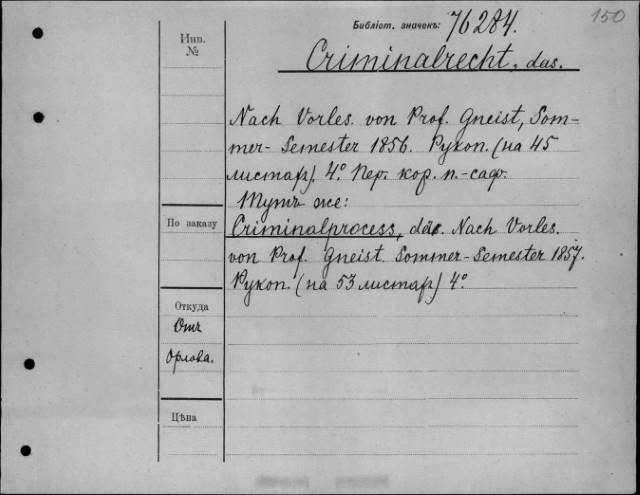 150
Библіот. значекъ: 76284.
Инв.
№
Criminalrecht, das.
Nach Vorles. von Prof. Gneist, Som-
mer-Semester 1856. Рукоп. (на 45
листахъ). 4º. Пер. кор. п.-саф.
Тутъ же:
По заказу
Criminalprocess, das. Nach Vorles.
von Prof. Gneist. Sommer-Semester 1857.
Рукоп. (на 53 листахъ) 4º.
Откуда
Отъ
Орлова.
Цѣна